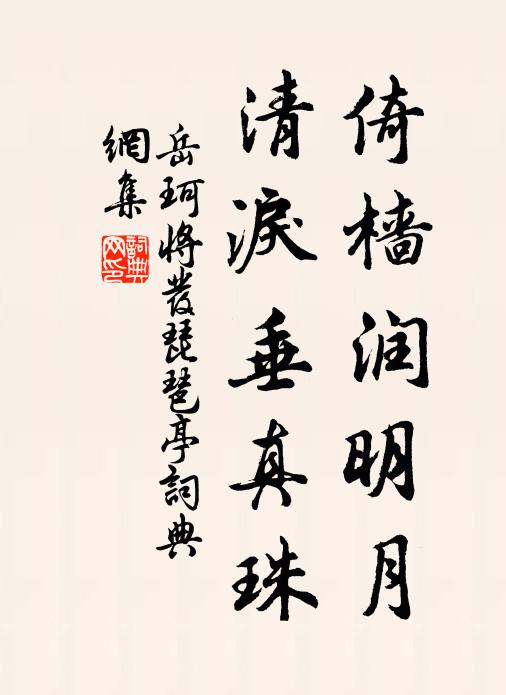 倚檣润明月
清淚垂真珠
岳珂將發琵琶亭詞典
網集
詞典
网印